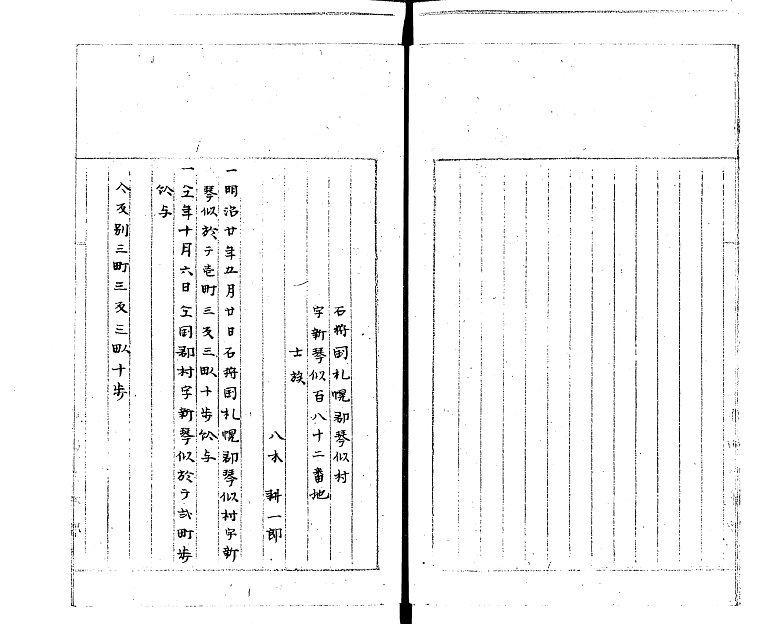 石狩国札幌郡琴似村
字新琴似百八十二番地
士族
八木耕一郎
一明治廿年五月廿日石狩国札幌郡琴似村字新
琴似於テ壱町三反三畝十歩給与
一仝年十月六日仝国郡村字新琴似於テ弐町歩
給与
合反別三町三反三畝十歩